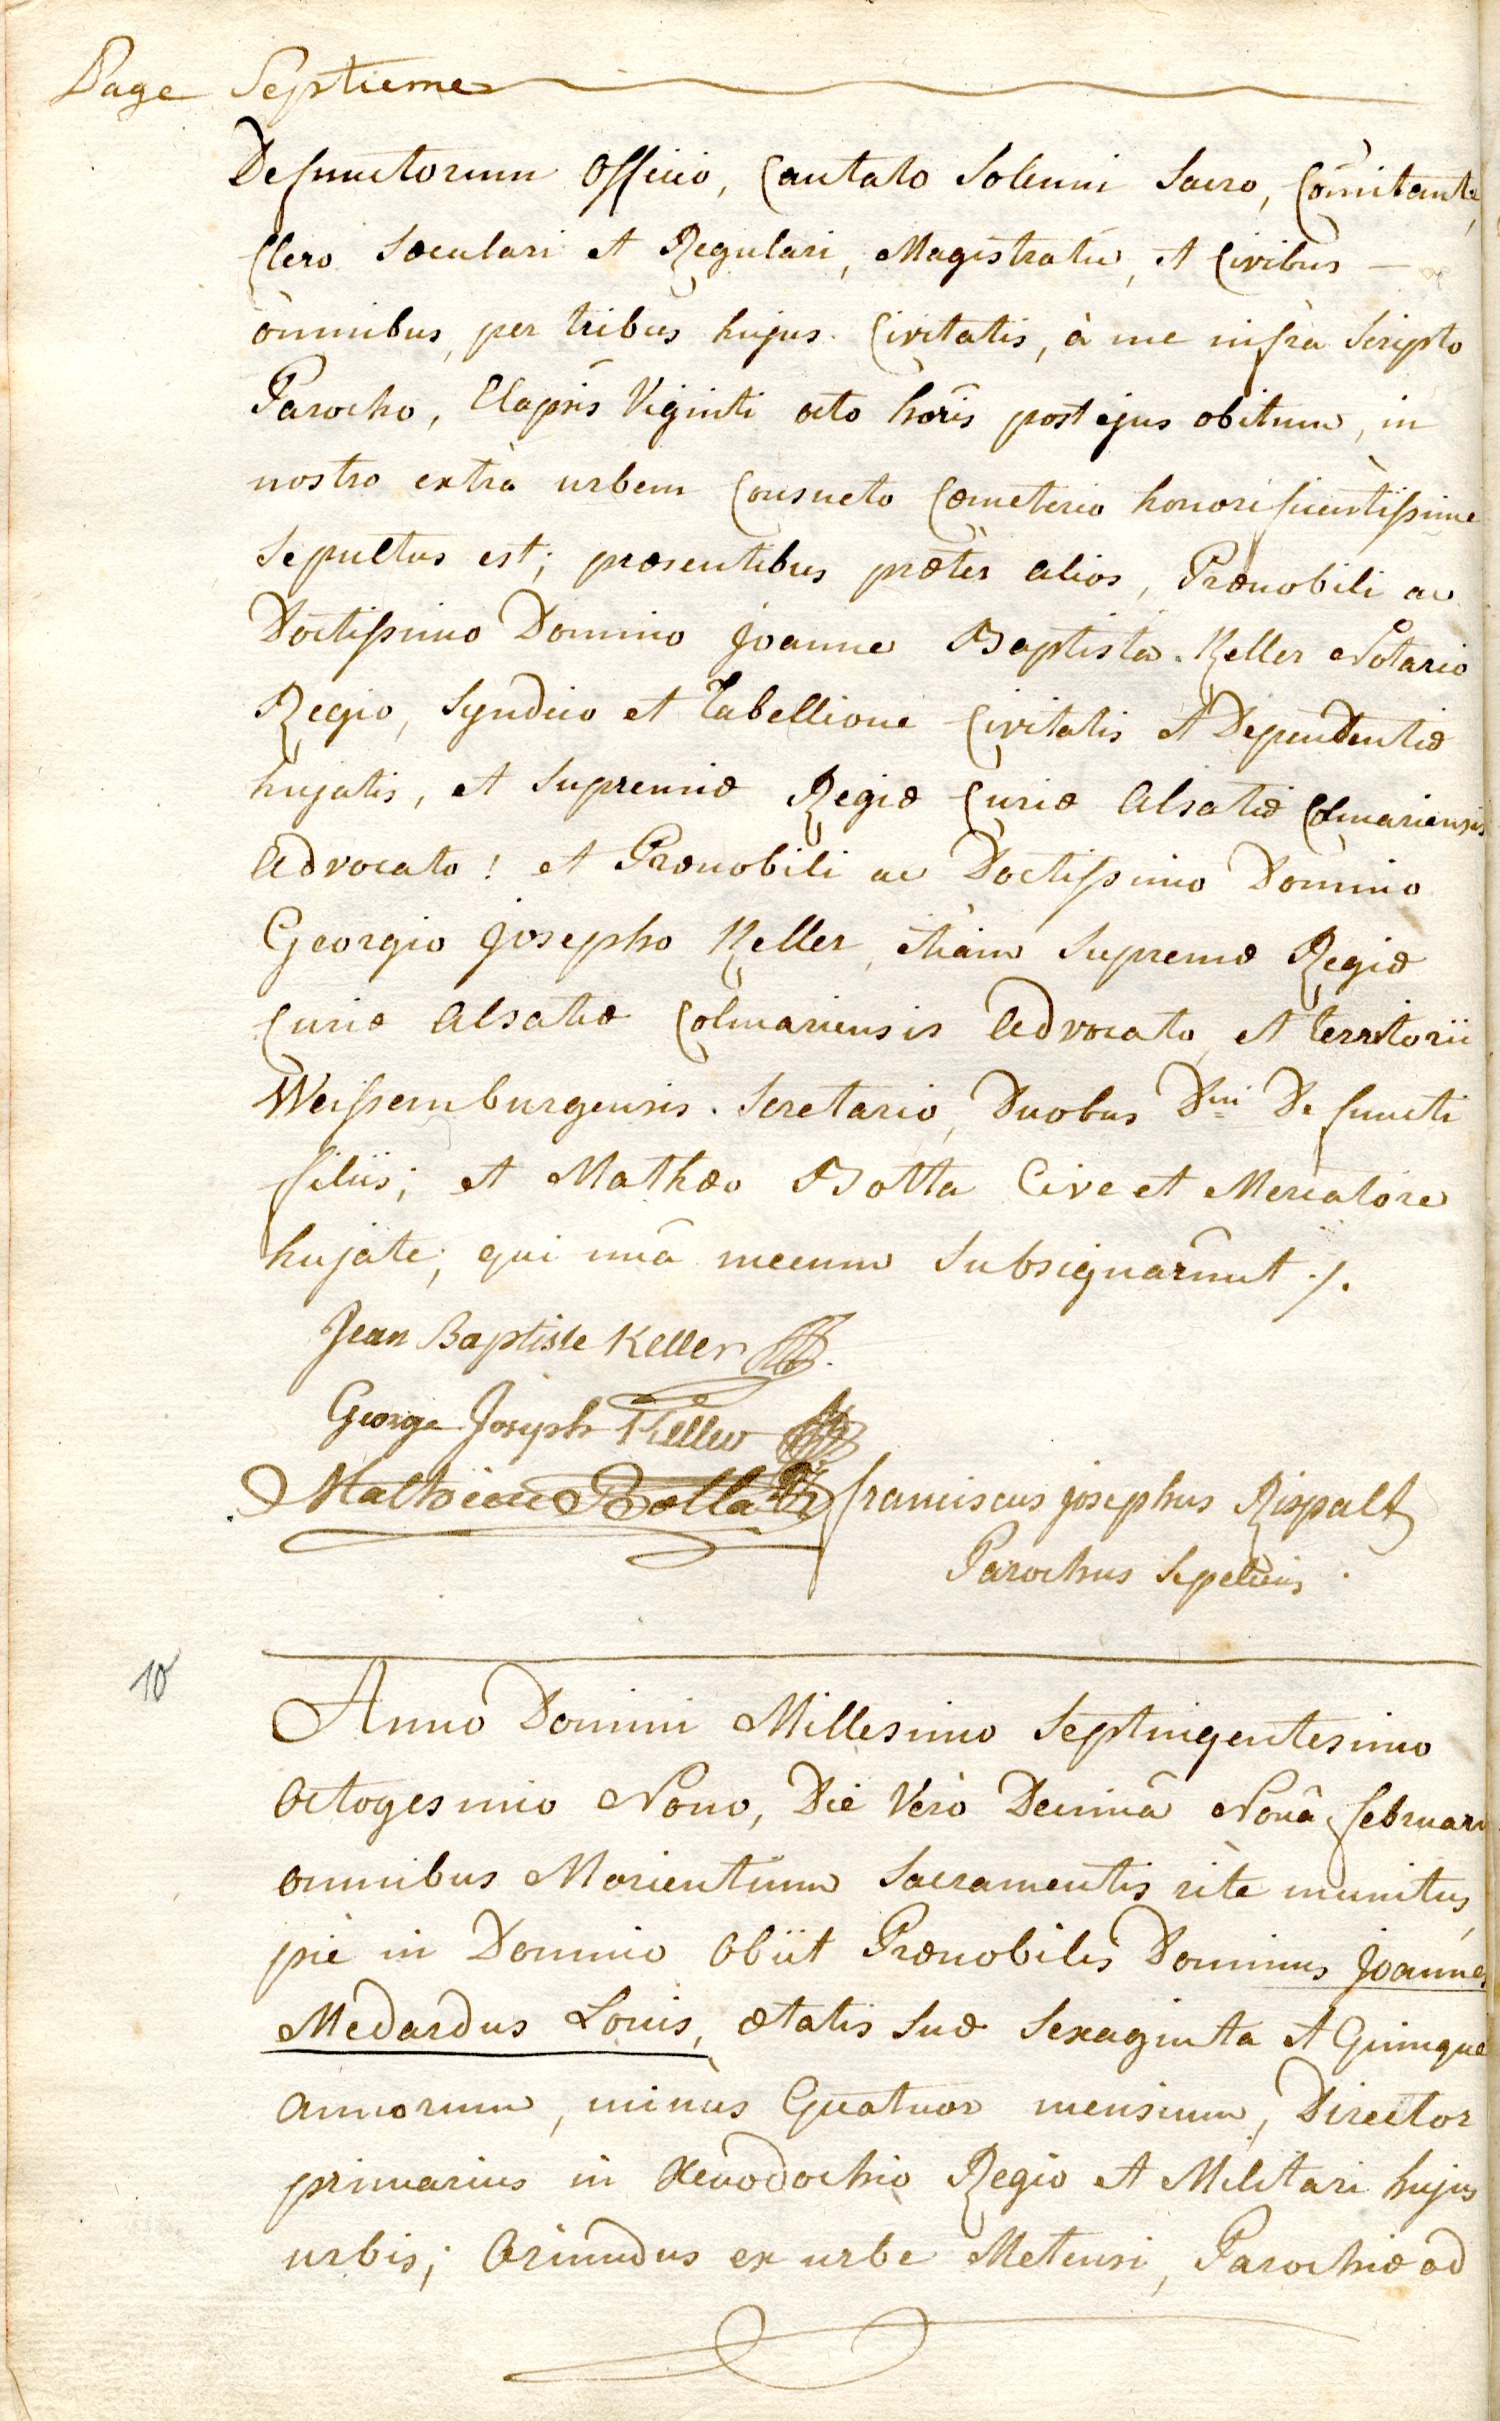 Page Septieme
Defunctorum Officio, Cantato Solemni Sacro, Comitante,
Clero Sæculari et Regulari, Magistratu, et Civibus –
omnibus, per tribus hujus Civitatis, à me infrà Scripto
Parocho, Elapsis Viginti octo horis post ejus obitum, in
nostro extrà urbem Consueto Cœmeterio honorificentissime
Sepultus est; præsentibus præter alios, Prænobili ac
Doctissimo Domino Joanne Baptista Keller Notario
Regio, Syndico et Tabellione Civitatis et Dependentiæ
hujatis, et Supremæ Regiæ Curiæ Alsatiæ Colmariensis
Advocato! et Prænobili ac Doctissimo Domino
Georgio Josepho Keller, etiam Supremæ Regiæ
Curiæ Alsatiæ Colmariensis Advocato et territorii
Weissemburgensis Scretario, Duobus Dni Defuncti
filiis; et Mathæo Botta Cive et Mercatore
hujate; qui unâ mecum Subsignârunt ./.
Jean Baptiste Keller
George Joseph Keller
Mathieu Botta franciscus josephus Rispalt
Parochus Sepeliens
10
Anno Domini Millesimo Septingentesimo
Octogesimo Nono, Die Verò Decimâ Nonâ februarii
omnibus Morientium Sacramentis rite munitus,
piè in Domino Obiit Prænobilis Dominus Joannes
Medardus Louis, ætatis Suæ Sexaginta et Quinque
annorum, minùs Quatuor mensium, Director
primarius in Xenodochio Regio et Militari hujus
urbis; Oriundus ex urbe Metensi, Parochiæ ad